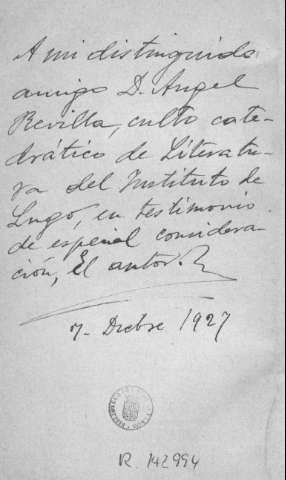 A mi distinguido
amigo D. Angel
Revilla, culto cate-
drático de Literatu-
ra del Instituto de
Lugo, en testimonio
de especial considera-
ción, El autor.
7- Dicbre 1927
R. 142994